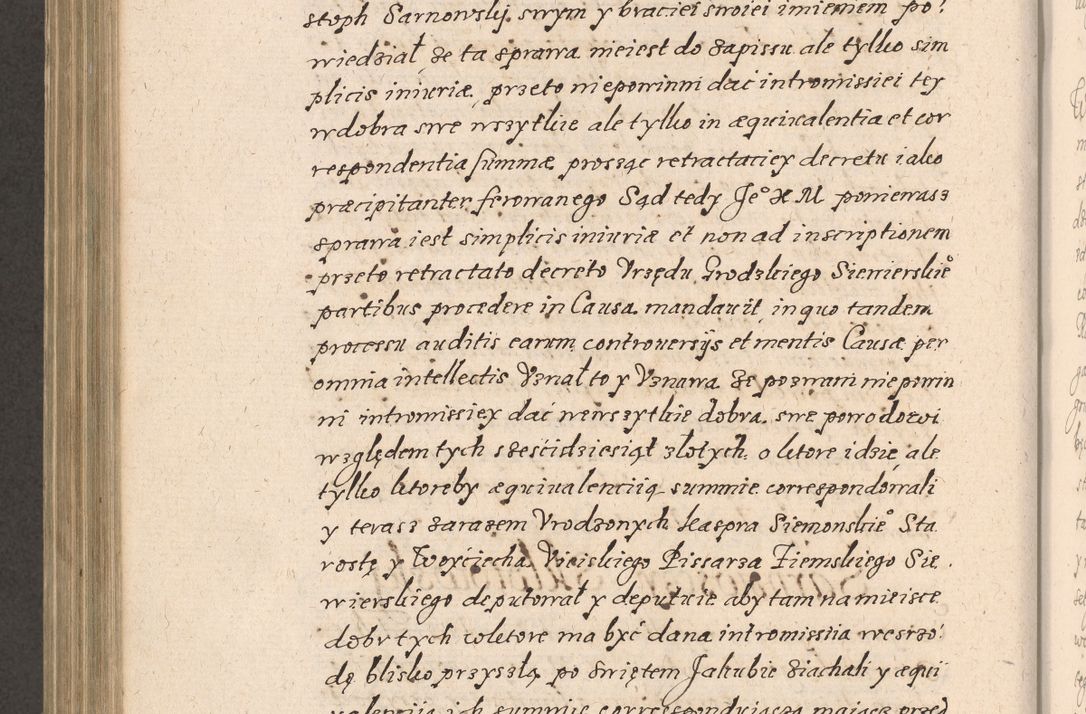 stoph Sarnowskj swym y braciei swoiei imieniem po:
wiedział, że ta sprawa nieiest do zapissu ale tylko sim
plicis iniuriæ, przeto niepowinni dac intromissiei tey
w dobra swe wszytkie ale tylko in æquiualentia et cor
respondentia summæ prosząc retractaciey decretu iako
præcipitanter ferowanego Sąd tedy Je° X M poniewasz
sprawa iest simplicis iniuriæ et non ad inscriptionem
przeto retractato decreto Vrzędu Grodzkiego Siewierskie°
partibus procedere in Causa mandauit, in quo tandem
processu auditis earum controuersijs et mentis Causæ per
omnia intellectis Vznał to y Vznawa że pozwani niepowin
ni intromissiey dać wewszytkie dobra swe powodowi
względem tych sześcidziesiąt złotych, o ktore idzie, ale
tylko ktoreby æquiualenciią summie correspondowali
y terasz zarazem Vrodzonych Kaspra Siemonskie° Sta
rostę y Woyciecha Vieiskiego Pissarza Ziemskiego Sie
wierskiego deputował y deputuie aby tam na mieisce
dobr tych wktore ma być dana intromissiia wesrzo:
dę blisko przyszłą po swiętem Jakubie ziachali y æqui
ualenciią ich summie correspondującą maiącą przed